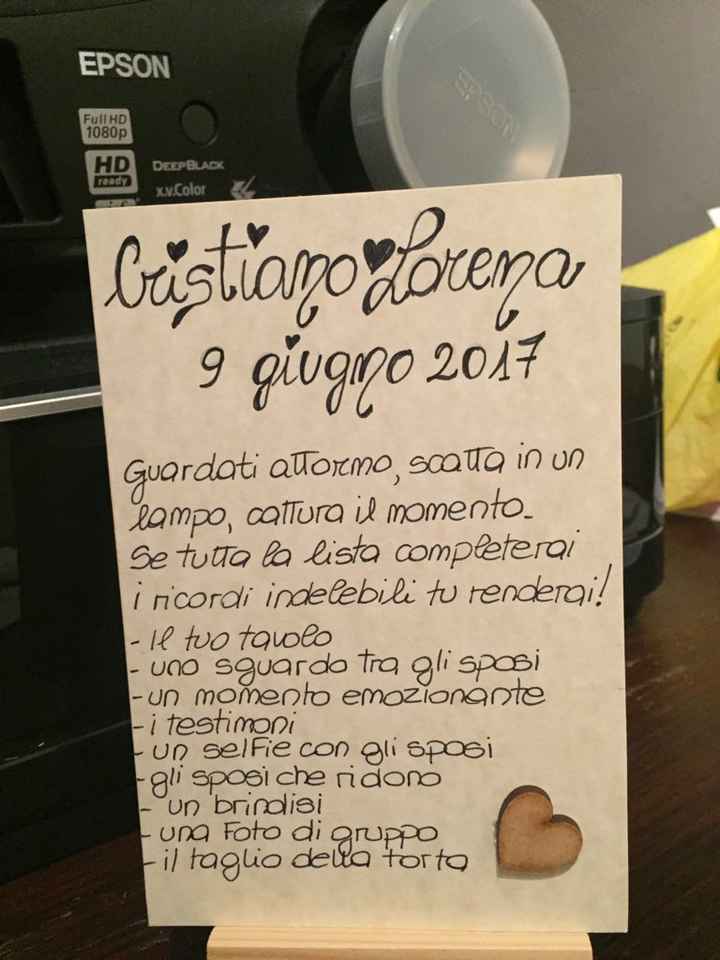 EPSON
Full HD
1080p
HD
ready
DEEPBLACK
x.v.Color
EPSON
Cristiano Lorena
9 giugno 2017
Guardati attorno, scatta in un
lampo, cattura il momento.
Se tutta la lista completerai
i ricordi indelebili tu renderai!
- Il tuo tavolo
- uno sguardo tra gli sposi
- un momento emozionante
- i testimoni
- un selfie con gli sposi
- gli sposi che ridono
- un brindisi
- una foto di gruppo
- il taglio della torta